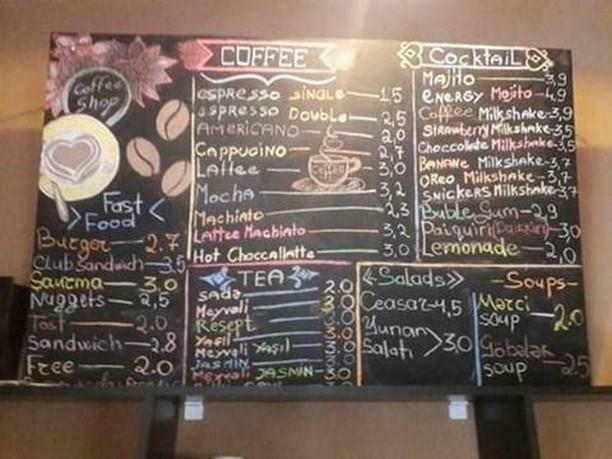 Coffee
Shop
Fast
Food
Burger 2.7
Club sandwich 3.5
Saurma 3.0
Nuggets 2,5
Tost 2.0
Sandwich 2.8
Free 2.0
COFFEE
espresso single 1,5
espresso Double 2,5
AMERICANO 2,0
Cappucino 2,7
Laffee 3,0
Mocha 3,2
Machiato 2,3
Laffee Machiato 3,2
Hot Choccallatte 3,0
TEA
sade 2.0
Meyvali
Resept
Yaşıl
Meyvali Yaşıl
JASMIN
Meyvali JASMIN 3.0
Cocktail
Majito 3,9
eNERGY Mojito 4,9
Coffee Milkshake 3,9
Strawberry Milkshake 3,5
Choccolate Milkshake 3,5
BANANE Milkshake 3,7
OReo Milkshake 3,7
SNICKERS Milkshake 3,7
Buble Gum 2,9
Daiquiri (Daikiri) 3,0
Lemonade 2,0
Salads
Ceasar 4,5
Yunan
Salatı 3,0
Soups
Mərci
soup 2.0
Göbələk
soup 2.5